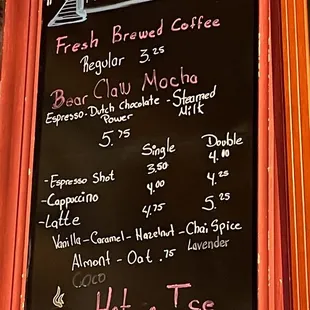 Fresh Brewed Coffee
Regular 3.25
Bear Claw Mocha
Espresso - Dutch Chocolate - Steamed
Power Milk
5.75
Single Double
- Espresso Shot 3.50 4.00
- Cappoccino 4.00 4.25
- Latte 4.75 5.25
Vanilla - Caramel - Hazelnut - Chai Spice
Almont - Oat .75 Lavender
Coco
Hot Tse